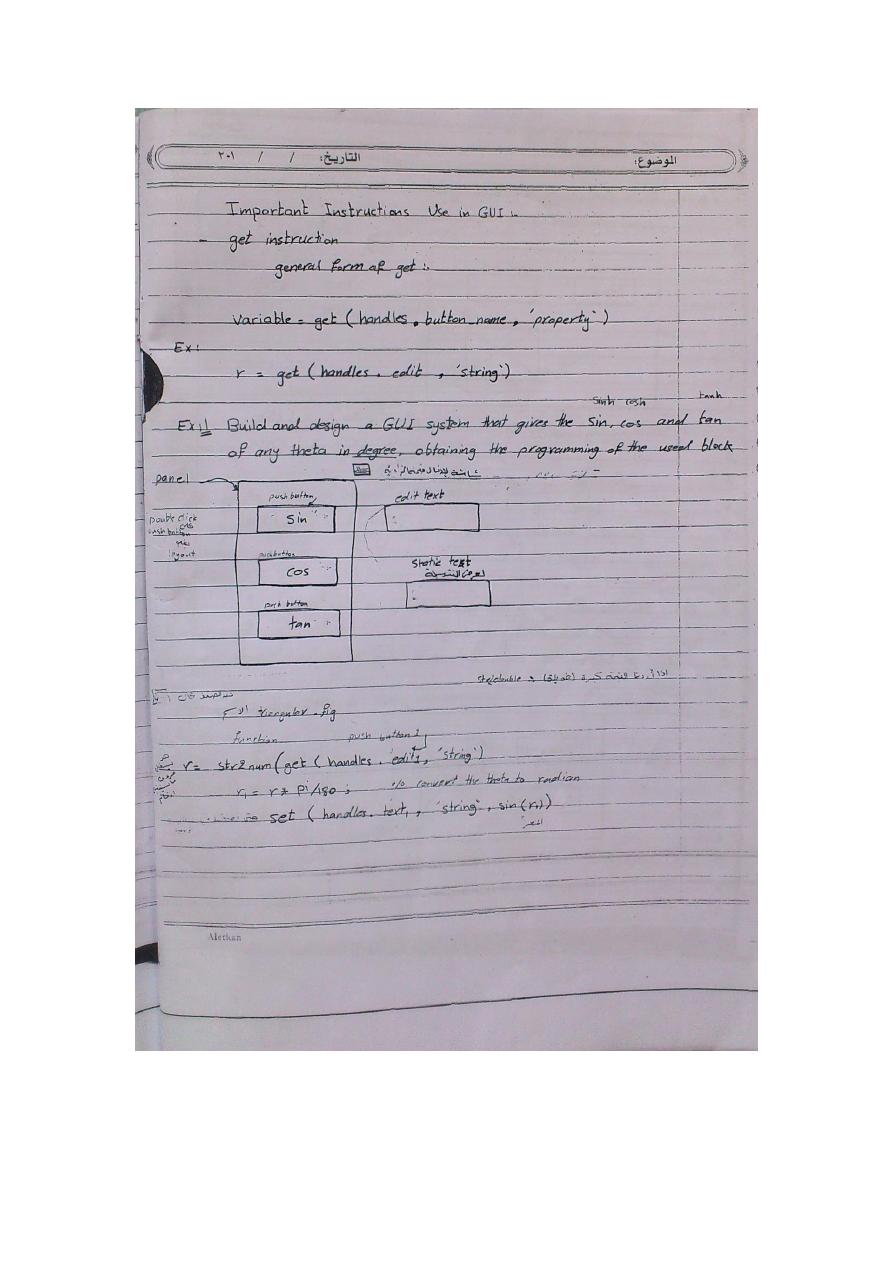 الموضوع: التاريخ: / / ٢٠١
Important Instructions Use in GUI :-
- get instruction
general form of get :-
Variable = get ( handles . button_name , 'property' )
Ex:
r = get ( handles . edit , 'string' )
sinh cosh tanh
Ex1 Build and design a GUI system that gives the sin, cos and tan
of any theta in degree, obtaining the programming of the used block
panel
push button
edit text
sin
Double click
push button
layout
push button
static text
cos
لعرض النتيجة
push button
tan
triangular . fig الاسم
function push button 1
r = str2num ( get ( handles . edit1 , 'string' )
r1 = r * pi/180 ; % convert the theta to radian
set ( handles . text1 , 'string' , sin (r1) )
Aletkan